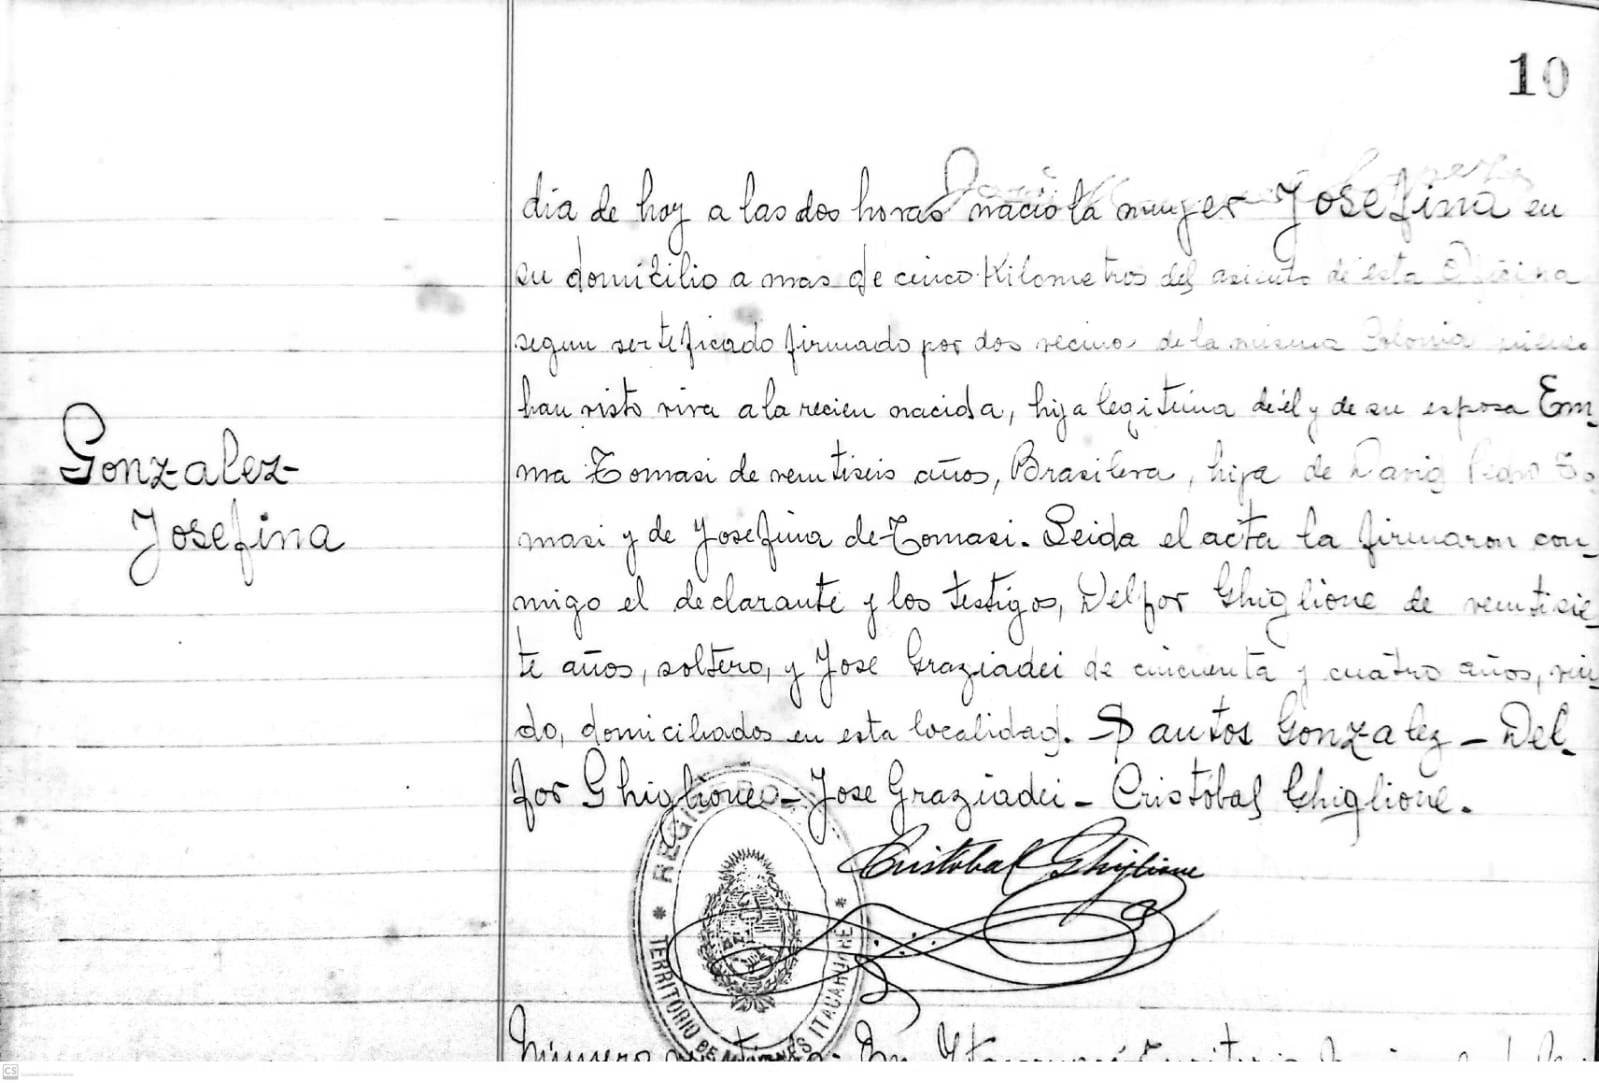 10
día de hoy a las dos horas nació la mujer Josefina en
su domicilio a mas de cinco Kilometros del asiento de esta Oficina
segun sertificado firmado por dos vecinos de la misma Colonia quienes
han visto viva a la recien nacida, hija legitima de él y de su esposa Em-
ma Tomasi de veintiseis años, Brasilera, hija de David Pedro To-
masi y de Josefina de Tomasi. Leida el acta la firmaron con-
migo el declarante y los testigos, Delfor Ghiglione de veintisie-
te años, soltero, y Jose Graziadei de cincuenta y cuatro años, viu-
do, domiciliados en esta localidad. Santos Gonzalez - Del-
for Ghiglione - Jose Graziadei - Cristóbal Ghiglione.
Gonzalez-
Josefina
Cristobal Ghiglione
REGISTRO
TERRITORIO DE MISIONES ITACARUARÉ
Número
CS